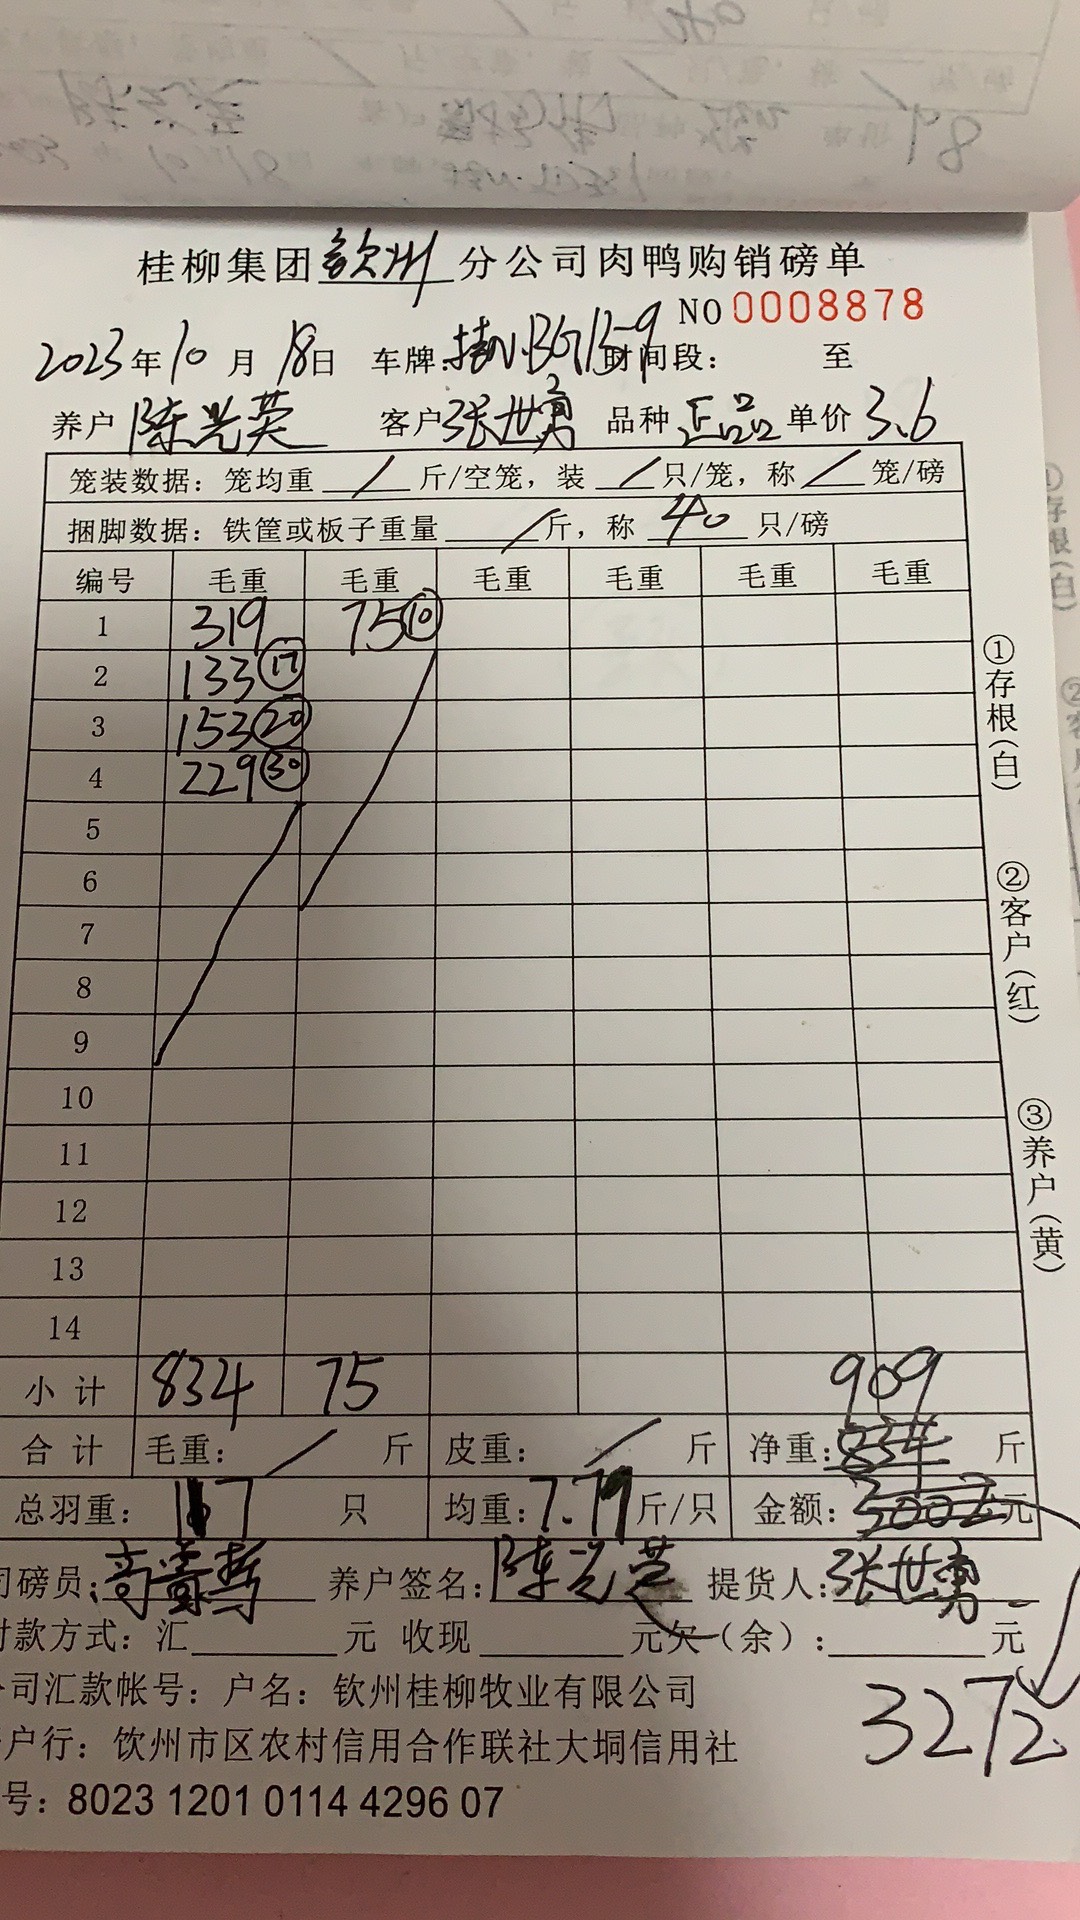 桂柳集团钦州分公司肉鸭购销磅单
NO 0008878
2023年10月18日 车牌:桂N.BG1359 时间段: 至
养户 陈光英 客户 张世勇 品种 正品 单价 3.6
笼装数据：笼均重 / 斤/空笼，装 / 只/笼，称 / 笼/磅
捆脚数据：铁筐或板子重量 / 斤，称 40 只/磅
编号 毛重 毛重 毛重 毛重 毛重 毛重
1 319 75⑩
2 133⑰
3 153⑳
4 229㉚
5
6
7
8
9
10
11
12
13
14
小计 834 75 909
合计 毛重: / 斤 皮重: / 斤 净重:834 斤
总羽重: 117 只 均重:7.79斤/只 金额:3002元
司磅员: 养户签名:陈光英 提货人:张世勇
付款方式：汇 元 收现 元欠（余）: 元
3272
公司汇款帐号：户名：钦州桂柳牧业有限公司
户行：饮州市区农村信用合作联社大垌信用社
号：8023 1201 0114 4296 07
①存根(白)
②客户(红)
③养户(黄)